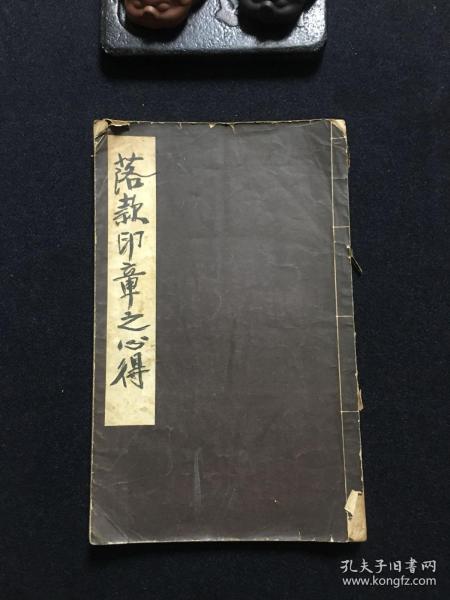 落款印章之心得
孔夫子旧书网
www.kongfz.com